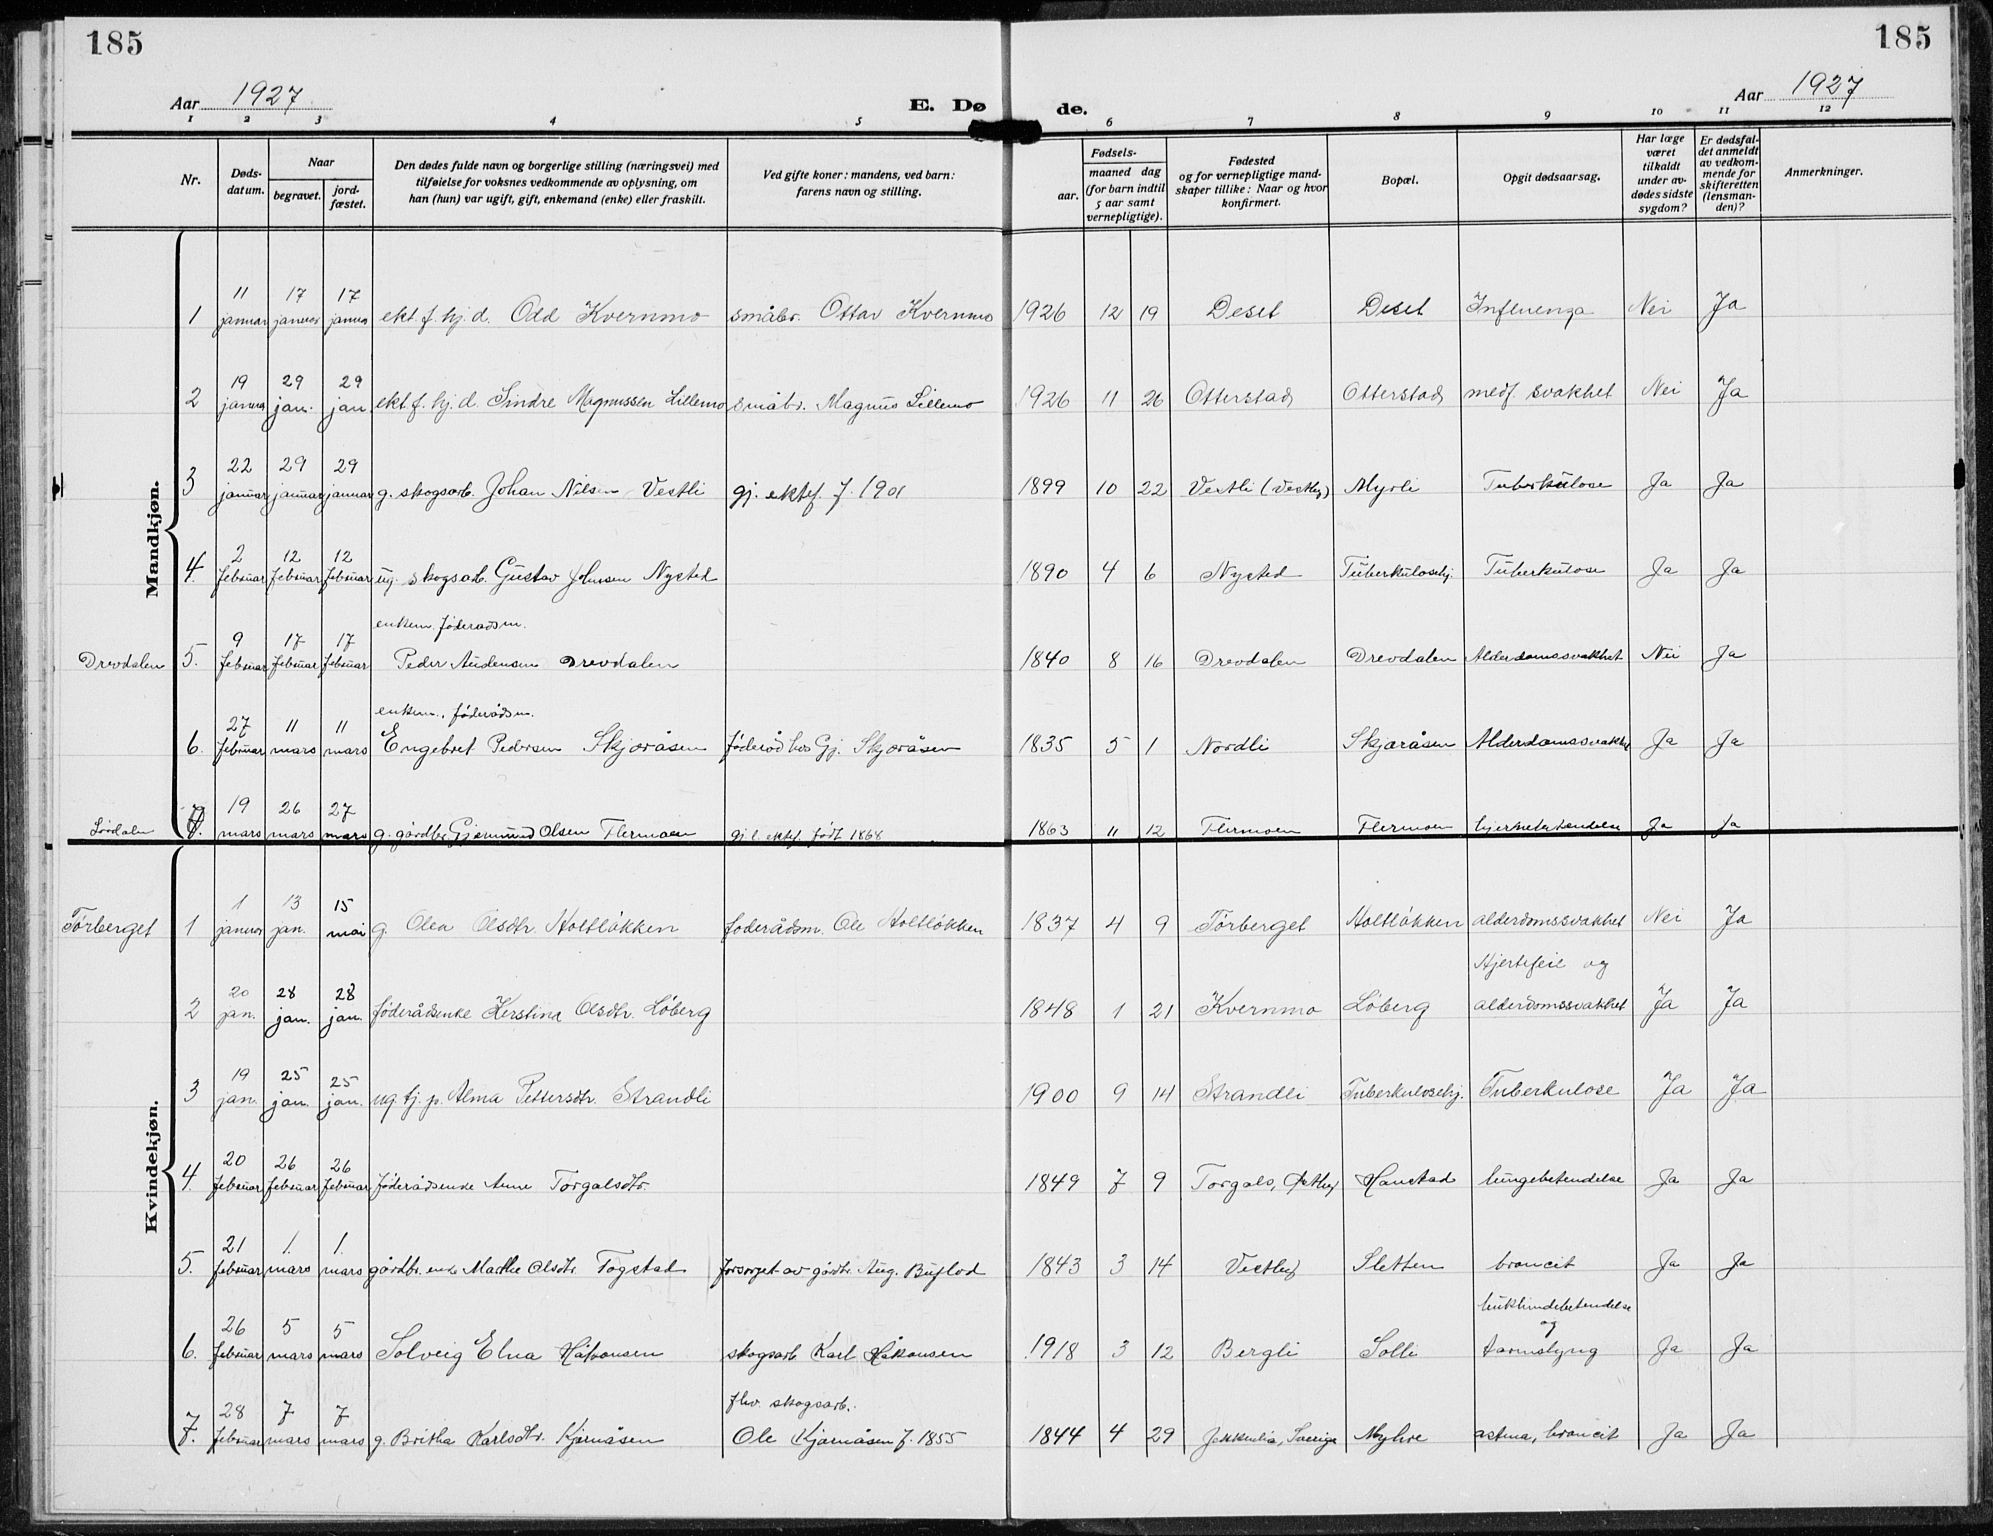 185
185
Aar 1927
E. Dø de.
Aar 1927
1 2 3 4 5 6 7 8 9 10 11 12
Nr.
Døds-datum.
Naar
begravet.
jord-fæstet.
Den dødes fulde navn og borgerlige stilling (næringsvei) med tilføielse for voksnes vedkommende av oplysning, om han (hun) var ugift, gift, enkemand (enke) eller fraskilt.
Ved gifte koner: mandens, ved barn: farens navn og stilling.
Fødsels-
aar.
maaned dag
(for barn indtil 5 aar samt vernepligtige).
Fødested og for vernepligtige mand-skaper tillike: Naar og hvor konfirmert.
Bopæl.
Opgit dødsaarsag.
Har læge været tilkaldt under av-dødes sidste sygdom?
Er dødsfal-det anmeldt av vedkom-mende for skifteretten (lensman-den)?
Anmerkninger.
Mandkjøn.
1 11 januar 17 januar 17 januar ekt. f. hj. d. Odd Kvernmo småbr. Ottar Kvernmo 1926 12 19 Deset Deset Influenza Nei Ja
2 19 januar 29 jan. 29 jan. ekt. f. hj. d. Sindre Magnussen Lillemo småbr. Magnus Lillemo 1926 11 26 Otterstad Otterstad medf. svakhet Nei Ja
3 22 januar 29 januar 29 januar g. skogsarb. Johan Nilsen Vestli gj. ektef. f. 1901 1899 10 22 Vestli (Vestby) Myrli Tuberkulose Ja Ja
4. 2 februar 12 februar 12 februar ug. skogsarb. Gustav Johnsen Nysted 1890 4 6 Nysted Tuberkulosehj. Tuberkulose Ja Ja
enkem. føderadsm.
Drevdalen 5. 9 februar 17 februar 17 februar Peder Audensen Drevdalen 1840 8 16 Drevdalen Drevdalen Alderdomssvakhet Nei Ja
enkem. føderådsm.
6. 27 februar 11 mars 11 mars Engebret Pedersen Skjæråsen føderåd hos Gj. Skjæråsen 1835 5 1 Nordli Skjæråsen Alderdomssvakhet Ja Ja
Lørdalen 7. 19 mars 26 mars 27 mars g. gårdbr. Gjermund Olsen Flermoen gj. l. ektef. født 1868 1863 11 12 Flermoen Flermoen hjernebetendelse Ja Ja
Kvindekjøn.
Tørberget 1 1 januar 13 jan. 15 mai g. Olea Olsdtr. Holtløkken føderådsm. Ole Holtløkken 1837 4 9 Tørberget Holtløkken alderdomssvakhet Nei Ja
Hjertefeil og
2 20 jan. 28 jan. 28 jan. føderådsenke Kerstina Olsdtr. Løberg 1848 1 21 Kvernmo Løberg alderdomssvakhet Ja Ja
3 19 jan. 25 jan. 25 jan. ug. tj. p. Alma Pettersdtr. Strandli 1900 9 14 Strandli Tuberkulosehj. Tuberkulose Ja Ja
4. 20 februar 26 februar 26 februar føderådsenke Anne Torgalsdtr. 1849 7 9 Torgals, Østby Hanstad lungebetendelse Ja Ja
5. 21 februar 1. mars 1. mars gårdbr. enke Marthe Olsdtr Togstad forsørget av gårdbr. Aug. Buflod 1843 3 14 Vestby Sletten broncit Ja Ja
bukhindebetendelse
og
6. 26 februar 5 mars 5 mars Solveig Elna Håkonsen skogsarb. Karl Håkonsen 1918 3 12 Bergli Solli tarmslyng Ja Ja
fhv. skogsarb.
7. 28 februar 7 mars 7 mars g. Britha Karlsdtr. Kjærnåsen Ole Kjærnåsen f. 1855 1844 4 29 Sverige Myhre astma, broncit Ja Ja